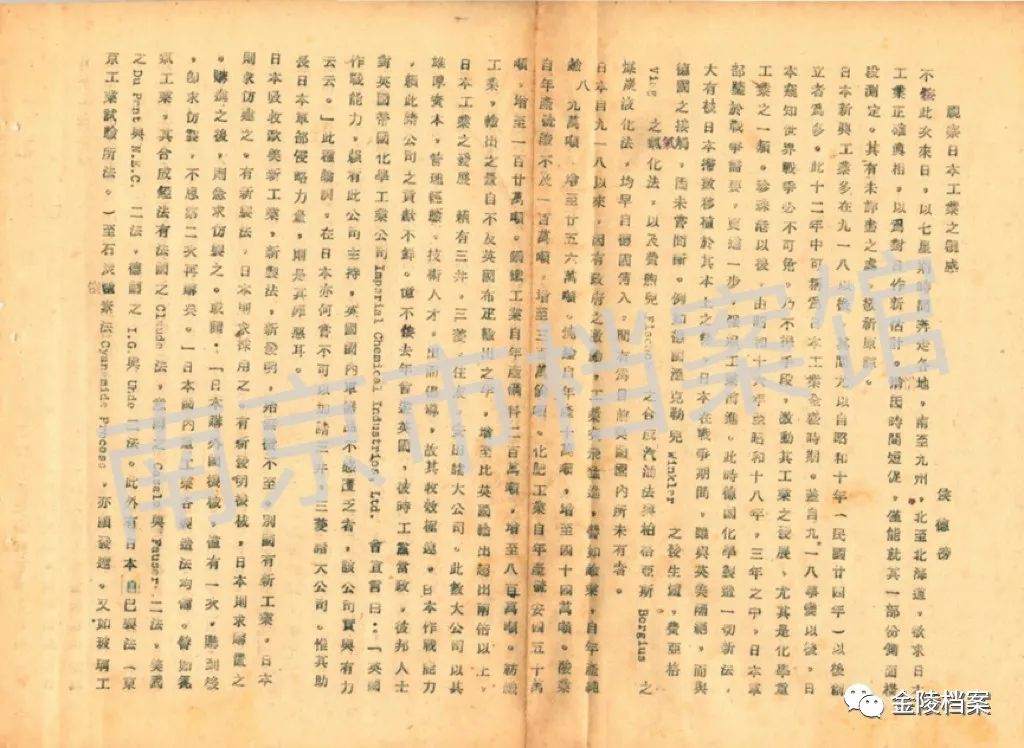 視察日本工業之觀感
侯德榜
不侫此次來日，以七星期時間奔走各地，南至九州，北至北海道，欲求日本
工業正確眞相，以爲對日作新估計。惜因時間短促，僅能就其一部份側面模
段測定。其有未詳盡之處，敬祈原諒。
日本新興工業多在九一八以後，其間尤以自昭和十年（民國廿四年）以後創
立者爲多。此十二年中可稱爲日本工業全盛時期。蓋自九一八事變以後，日
本窺知世界戰爭必不可免，乃不擇手段，激動其工業之發展、尤其是化學重
工業之一類。珍珠港以後，由昭和十六年至昭和十八年，三年之中，日本軍
部鑒於戰爭需要，更進一步，强迫工業前進。此時德國化學製造一切新法，
大有被日本搬致移植於其本土之勢。日本在戰爭期間，雖與英美隔絕，而與
德國之接觸，固未嘗間斷。例如德國溫克勒兒 Winkler 之後生爐，費亞格
Viag 之氣化法，以及費煦兒 Fischer 之合成汽油法與柏格亞斯 Bergius 之
煤炭液化法，均早自德國簿入，間有爲目前美國國內所未有者。
日本自九一八以來，因有政府之激勵，工業突飛猛進，譬如鹼業，自年產純
鹼八九萬噸，增至廿五六萬噸。燒鹼自年產十萬噸，增至四十萬噸。酸業
自年產硫酸不及一百萬噸，增至三百萬餘噸。化肥工業自年產硫安四五十萬
噸，增至一百廿萬噸。鋼鐵工業自年產鋼料二百萬噸，增至八百萬噸。紡織
工業，輸出之量自不及英國布疋輸出之半，增至比英國輸出超出兩倍以上。
日本工業之發展，賴有三井，三菱，住友，安田諸大公司。此數大公司以其
雄厚資本，管理經驗，技術人才，出而倡導，故其收效極速。日本作戰能力
，賴此諸公司之貢獻不鮮。憶不侫去年曾遊英國，彼時工黨當政，彼邦人士
對英國帝國化學工業公司 Imperial Chemical Industries Ltd. 曾宣言曰：「英國
作戰能力，賴有此公司主持，英國國內軍需品不感匱乏者，該公司實與有力
云云。」此種論調，在日本亦何嘗不可以加諸三井，三菱諸大公司。惟其助
長日本軍部侵略力量，則是其罪惡耳。
日本吸收歐美新工業，新製法，新發明，殆無微不至。別國有新工業，日本
則求仿建之。有新製法，日本則求採用之。有新發明機械，日本則求購置之
。購到之後，則急求仿製之。故聞：「日本購外國機械，僅有一次，購到後
，卽求仿製，不思第二次再購矣。」日本國內重工業各製造法均備。譬如氮
氣工業，其合成氨法有法國之 Claude 法，義國之 Casale 與 Fauser 二法，美國
之 Du Pont 與 N.E.C. 二法，德國之 I.G. 與 Uhde 二法。此外有日本自己製法（東
京工業試驗所法。）至石灰氮素法 Cyanamide Process，亦頗發達。又如玻璃工
南京市档案馆
金陵档案